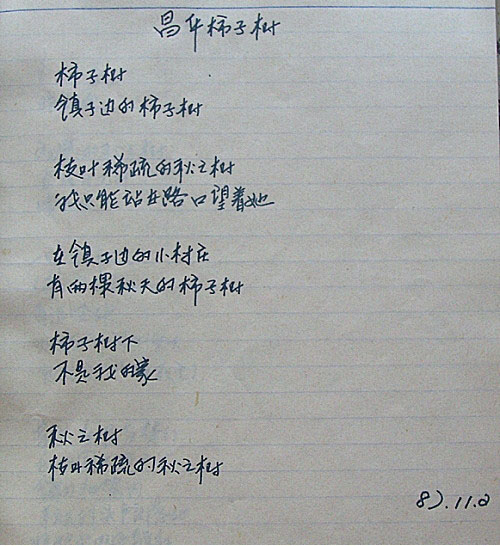 昌平柿子树
柿子树
镇子边的柿子树
枝叶稀疏的秋之树
我只能站在路口望着她
在镇子边的小村庄
有两棵秋天的柿子树
柿子树下
不是我的家
秋之树
枝叶稀疏的秋之树
87.11.2